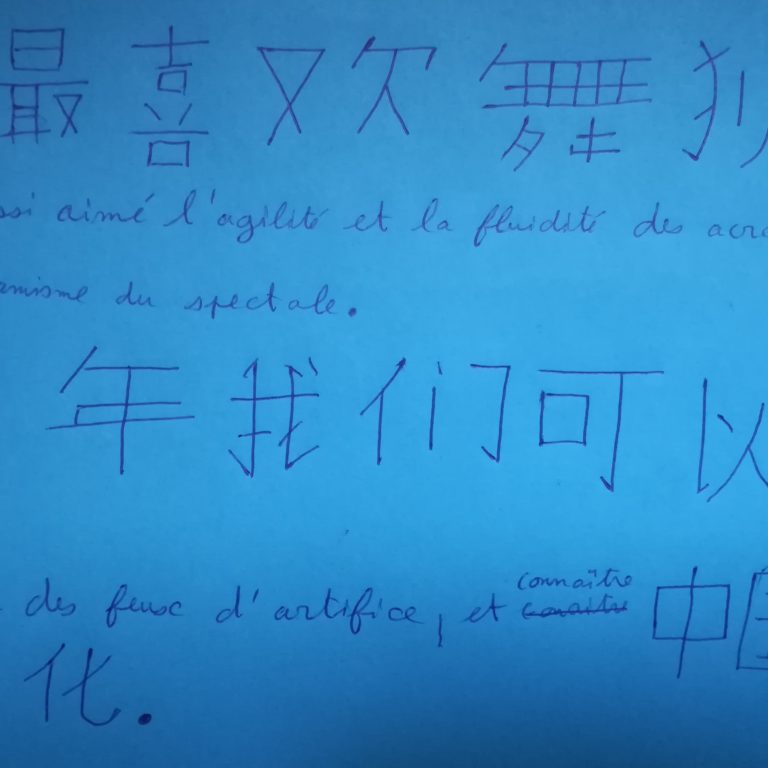 最喜欢舞狮
ssi aimé l'agilité et la fluidité des acro
amisme du spectale.
年我们可以
des feux d'artifice, et connaître 中国
化.